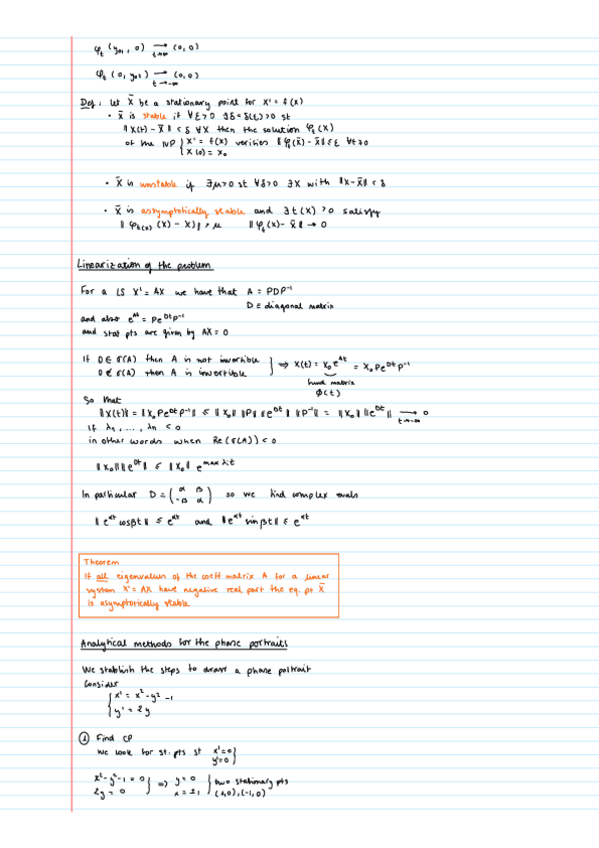 φ_t (y₀₁, 0) →_{t→∞} (0,0)
φ_t (0, y₀₂) →_{t→-∞} (0,0)
Def: let X̄ be a stationary point for X' = f(X)
• X̄ is stable if ∀ξ>0 ∃δ=δ(ξ)>0 st
‖X(t) - X̄‖ < δ ∀X then the solution φ_t(X)
of the IVP { X' = f(X) verifies ‖φ_t(X̄) - X̄‖ ≤ ξ ∀t≥0
X(0) = X₀
• X̄ is unstable if ∃μ>0 st ∀δ>0 ∃X with ‖X-X̄‖ < δ
• X̄ is asymptotically stable and ∃t(X) > 0 satisfy
‖φ_{t(X)}(X) - X)‖ > μ ‖φ_t(X) - X̄‖ → 0
Linearization of the problem
For a LS X' = AX we have that A = PDP⁻¹
D = diagonal matrix
and also e^{At} = Pe^{Dt}P⁻¹
and stat pts are given by AX = 0
If 0 ∈ σ(A) then A is not invertible
0 ∉ σ(A) then A is invertible } ⇒ X(t) = X₀e^{At} = X₀Pe^{Dt}P⁻¹
fund matrix
Φ(t)
So that
‖X(t)‖ = ‖X₀Pe^{Dt}P⁻¹‖ ≤ ‖X₀‖ ‖P‖ ‖e^{Dt}‖ ‖P⁻¹‖ = ‖X₀‖ ‖e^{Dt}‖ →_{t→∞} 0
if λ₁, ..., λn < 0
in other words when Re(σ(A)) < 0
‖X₀‖ ‖e^{Dt}‖ ≤ ‖X₀‖ e^{max λit}
In particular D = (α β; -β α) so we find complex evals
‖e^{αt} cosβt‖ ≤ e^{αt} and ‖e^{αt} sinβt‖ ≤ e^{αt}
Theorem
If all eigenvalues of the coeff matrix A for a linear
system X' = AX have negative real part the eq. pt X̄
is asymptotically stable
Analytical methods for the phase portraits
We establish the steps to draw a phase portrait
Consider
{ x' = x² - y² - 1
y' = 2y
① Find CP
We look for st. pts st x'=0
y'=0 }
x² - y² - 1 = 0
2y = 0 } ⇒ y = 0
x = ±1 } two stationary pts
(1,0), (-1,0)